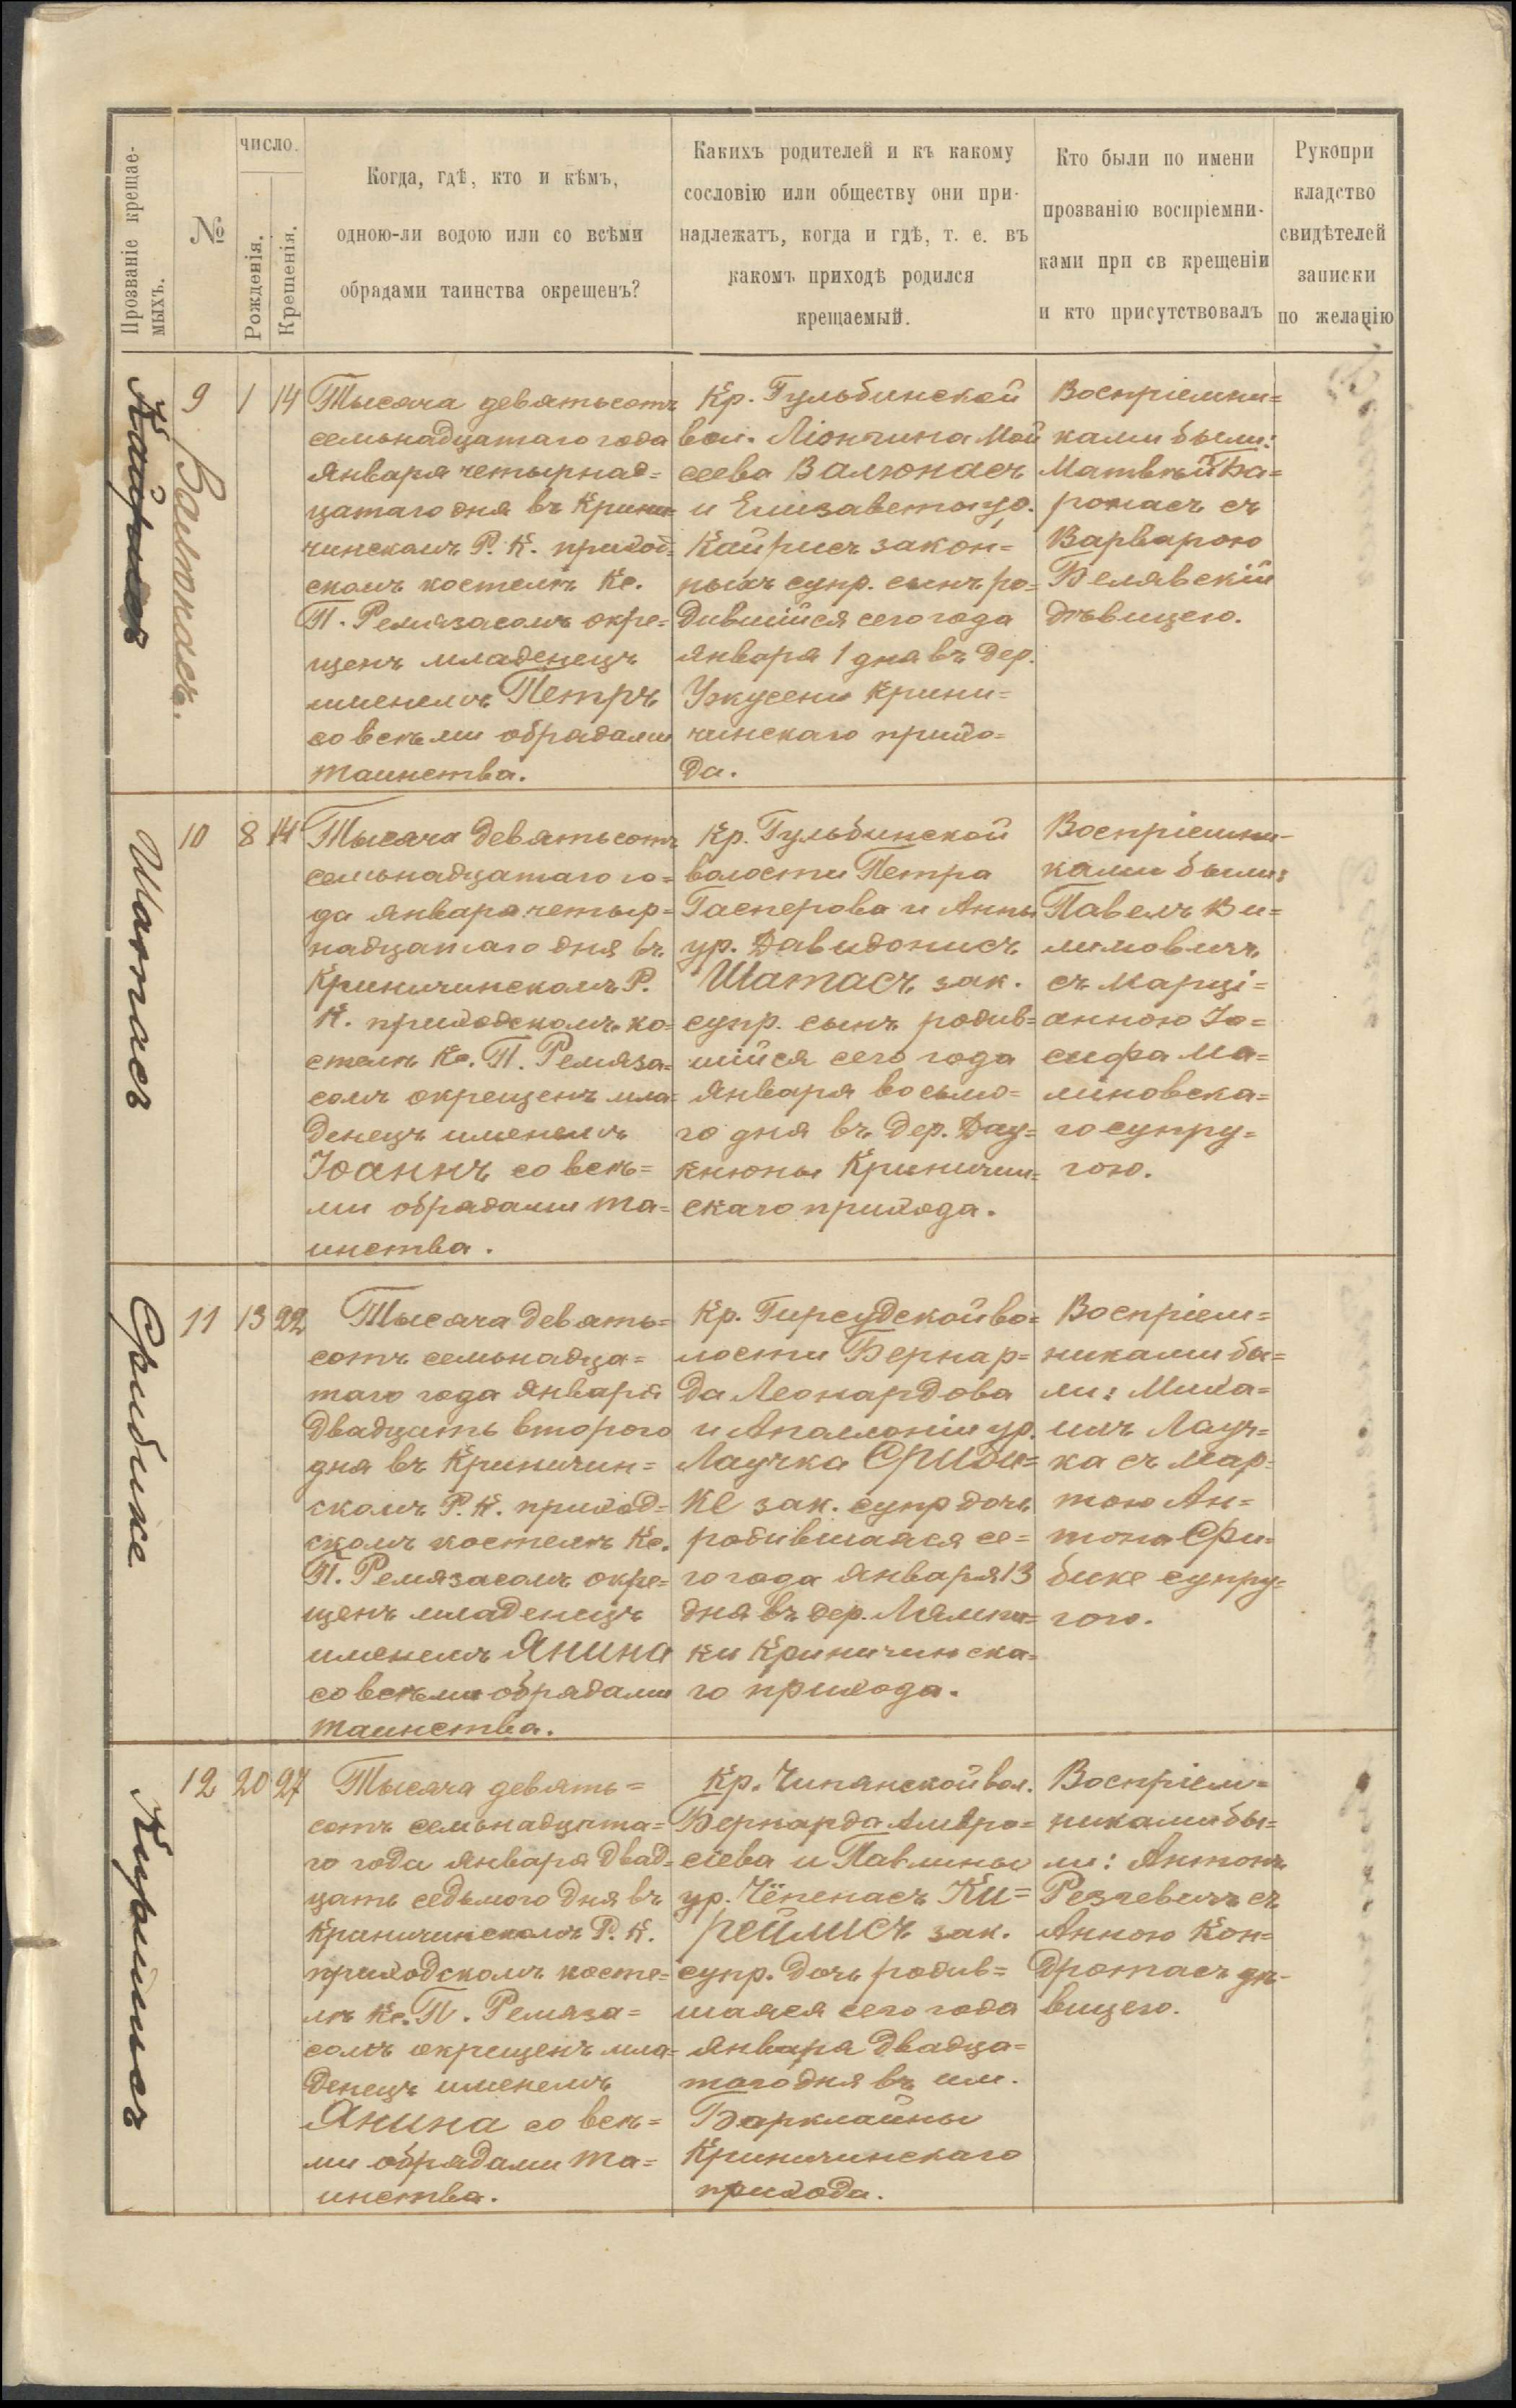 Прозваніе крещае-
мыхъ.
№
число.
Рожденія.
Крещенія.
Когда, гдѣ, кто и кѣмъ,
одною-ли водою или со всѣми
обрадами таинства окрещенъ?
Какихъ родителей и къ какому
сословію или обществу они при-
надлежатъ, когда и гдѣ, т. е. въ
какомъ приходѣ родился
крещаемый.
Кто были по имени
прозванію воспріемни-
ками при св крещеніи
и кто присутствовалъ
Рукопри
кладство
свидѣтелей
записки
по желанію
Кайрисъ
Валюнасъ.
9
1
14
Тысяча девятьсотъ
семьнадцатаго года
января четырнад=
цатаго дня въ Крини=
чинскомъ Р. К. приход=
скомъ костелѣ Кс.
П. Ремязасомъ окре=
щенъ младенецъ
именемъ Петръ
со всѣми обрадами
таинства.
Кр. Гульбинской
вол. Ліонгина Мой
сеева Валюнасъ
и Елизаветы ур.
Кайрисъ закон=
ныхъ супр. сынъ ро=
дившійся сего года
января 1 дня въ дер.
Ужусени Крини=
чинскаго прихо=
да.
Воспріемни=
ками были:
Матвѣй Ба=
ронасъ съ
Варварою
Белявскій
дѣвицею.
Шатасъ
10
8
14
Тысяча девятьсотъ
семьнадцатаго го=
да января четыр=
надцатаго дня въ
Криничинскомъ Р.
К. приходскомъ ко=
стелѣ Кс. П. Ремяза=
сомъ окрещенъ мла=
денецъ именемъ
Іоаннъ со всѣ=
ми обрадами та=
инства.
Кр. Гульбинской
волости Петра
Гасперова и Анны
ур. Давидонисъ
Шатасъ зак.
супр. сынъ родив=
шійся сего года
января восьмо=
го дня въ дер. Дау=
кнюны Криничин=
скаго прихода.
Воспріемни-
ками были:
Павелъ Ви=
лимовичъ
съ Марці=
анною Іо=
сифа Ма=
линовска=
го супру=
гою.
Срибике
11
13
22
Тысяча девять=
сотъ семьнадца=
таго года января
двадцать второго
дня въ Криничин=
скомъ Р. К. приход=
скомъ костелѣ Кс.
П. Ремязасомъ окре=
щенъ младенецъ
именемъ Янина
со всѣми обрядами
таинства.
Кр. Гирсудской во=
лости Бернар=
да Леонардова
и Аполлоніи ур.
Лаучка Сриби=
ке зак. супр дочь
родившаяся се=
го года января 13
дня въ дер. Лямпи=
ки Криничинска=
го прихода.
Воспріем=
никами бы=
ли: Миха=
илъ Лауч=
ка съ Мар=
тою Ан=
тона Сри=
бике супру=
гою.
Кирейлисъ
12
20
27
Тысяча девять=
сотъ семьнадцата=
го года января двад=
цать седьмого дня въ
Криничинскомъ Р. К.
приходскомъ косте=
лѣ Кс. П. Ремяза=
сомъ окрещенъ мла=
денецъ именемъ
Янина со всѣ=
ми обрядами та=
инства.
Кр. Чипянской вол.
Бернарда Амвро=
сіева и Павлины
ур. Чёпенасъ Ки=
рейлисъ зак.
супр. дочь родив=
шаяся сего года
января двадца=
таго дня въ им.
Барклайны
Криничинскаго
прихода.
Воспріем=
никами бы=
ли: Антонъ
Резгевичъ съ
Анною Кон=
дротасъ дѣ-
вицею.